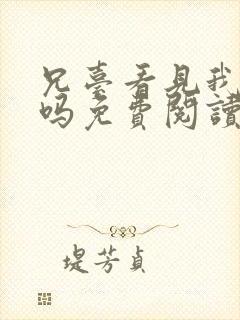 兄臺看見我
吗免費閱讀
堤芳貞